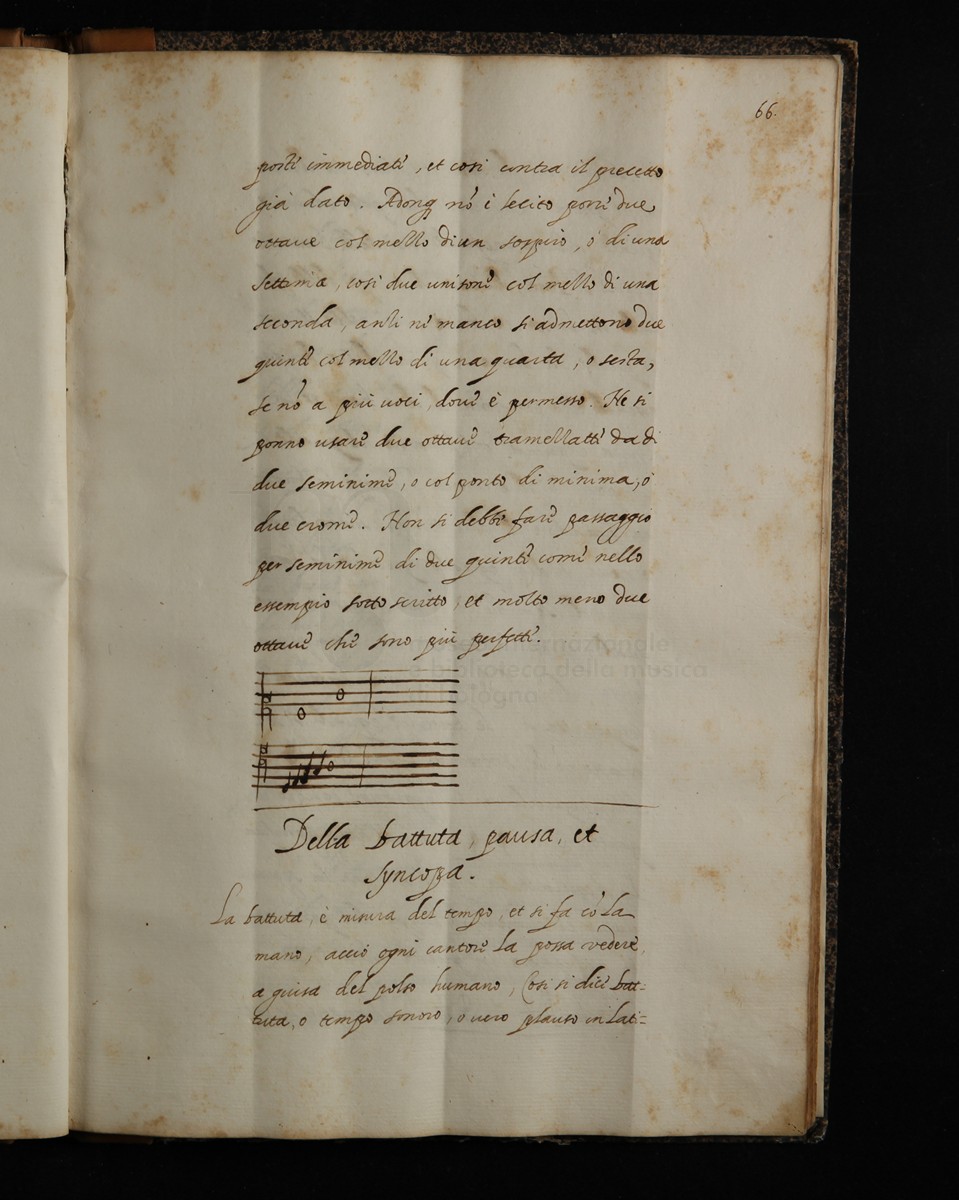 66.
posti immediati, et cosi contra il precetto
già dato. Adonq nō è lecito porre due
ottave col mezzo di un sospiro, ò di una
settima, cosi due unisoni col mezzo di una
seconda, anzi ne manco si admettono due
quinte col mezzo di una quarta, o sesta,
se nō a più voci, dove è permesso. Ne si
ponno usare due ottave tramezzate da di
due seminime, o col ponto di minima, ò
due crome. Non si debbe fare passaggio
per seminime di due quinte come nello
essempio sotto scritto, et molto meno due
ottave che sono più perfette.
internazionale
e biblioteca della musica
di bologna
Della battuta, pausa, et
syncopa.
La battuta, è misura del tempo, et si fa cō la
mano, acciò ogni cantore la possa vedere,
a guisa del polso humano, Cosi si dice bat=
tuta, o tempo sonoro, o vero plauso in lati=